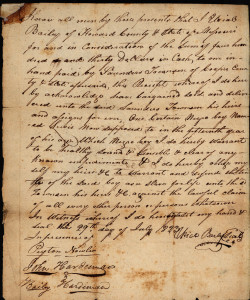 Know all men by these presents that I Elsiah
Baily of Howard County & State of Missouri
for and in Consideration of the Sum of four hun
dred and thirty Dollars in Cash, to me in
hand paid by Saunders Townsen of same County
& State aforesaid, the Receipt whereof I do here
by acknowledge have bargained sold and deliv
ered unto the said Saunders Townsen his heirs
and assigns for ever One Certain Negro boy Nam
ed now supposed to be in the fifteenth year
of his age. Which Negro boy I do hereby warrant
to be healthy sound & sensible & clear of any
known impediments, & I do hereby oblige my
self my heirs &c to warrant and defend the
of the said boy as a slave for life unto the sd
Townsen his heirs &c against the lawful claim
of all any other person or persons whatsoever
In Witness whereof I do hereunto set my hand &
seal this 29th day of July
In presence of
Peyton Nowlin
John Hardeman
Baily Hardeman